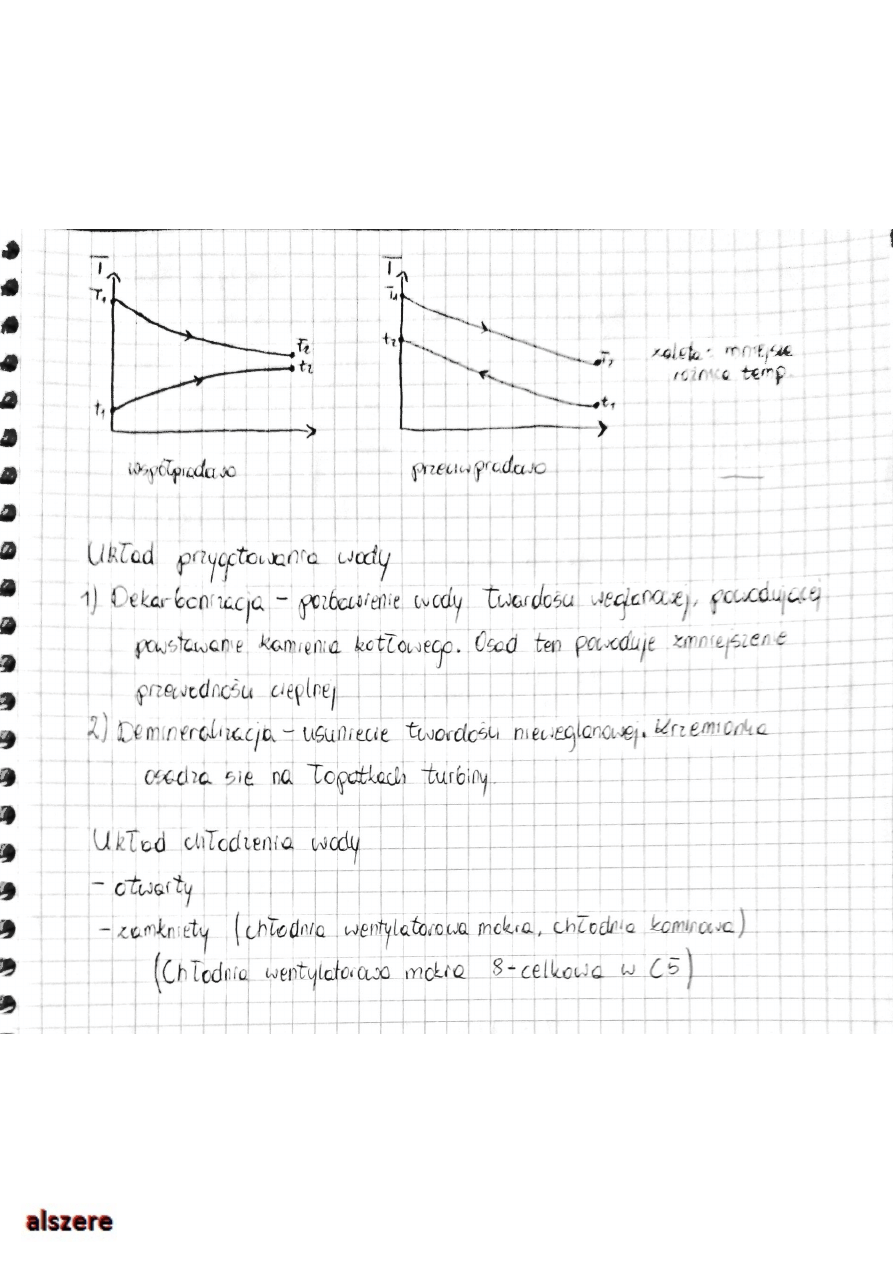 T
T1
T2
t2
t1
współprądowo
T
T1
t2
T2
t1
przeciwprądowo
zaleta: mniejsza
różnica temp.
Układ przygotowania wody
1) Dekarbonizacja – pozbawienie wody twardości węglanowej, powodującej
powstawanie kamienia kotłowego. Osad ten powoduje zmniejszenie
przewodności cieplnej
2) Demineralizacja – usunięcie twardości niewęglanowej. Krzemionka
osadza się na łopatkach turbiny.
Układ chłodzenia wody
– otwarty
– zamknięty (chłodnia wentylatorowa mokra, chłodnia kominowa)
(Chłodnia wentylatorowa mokra 8-celkowa w C5)
alszere